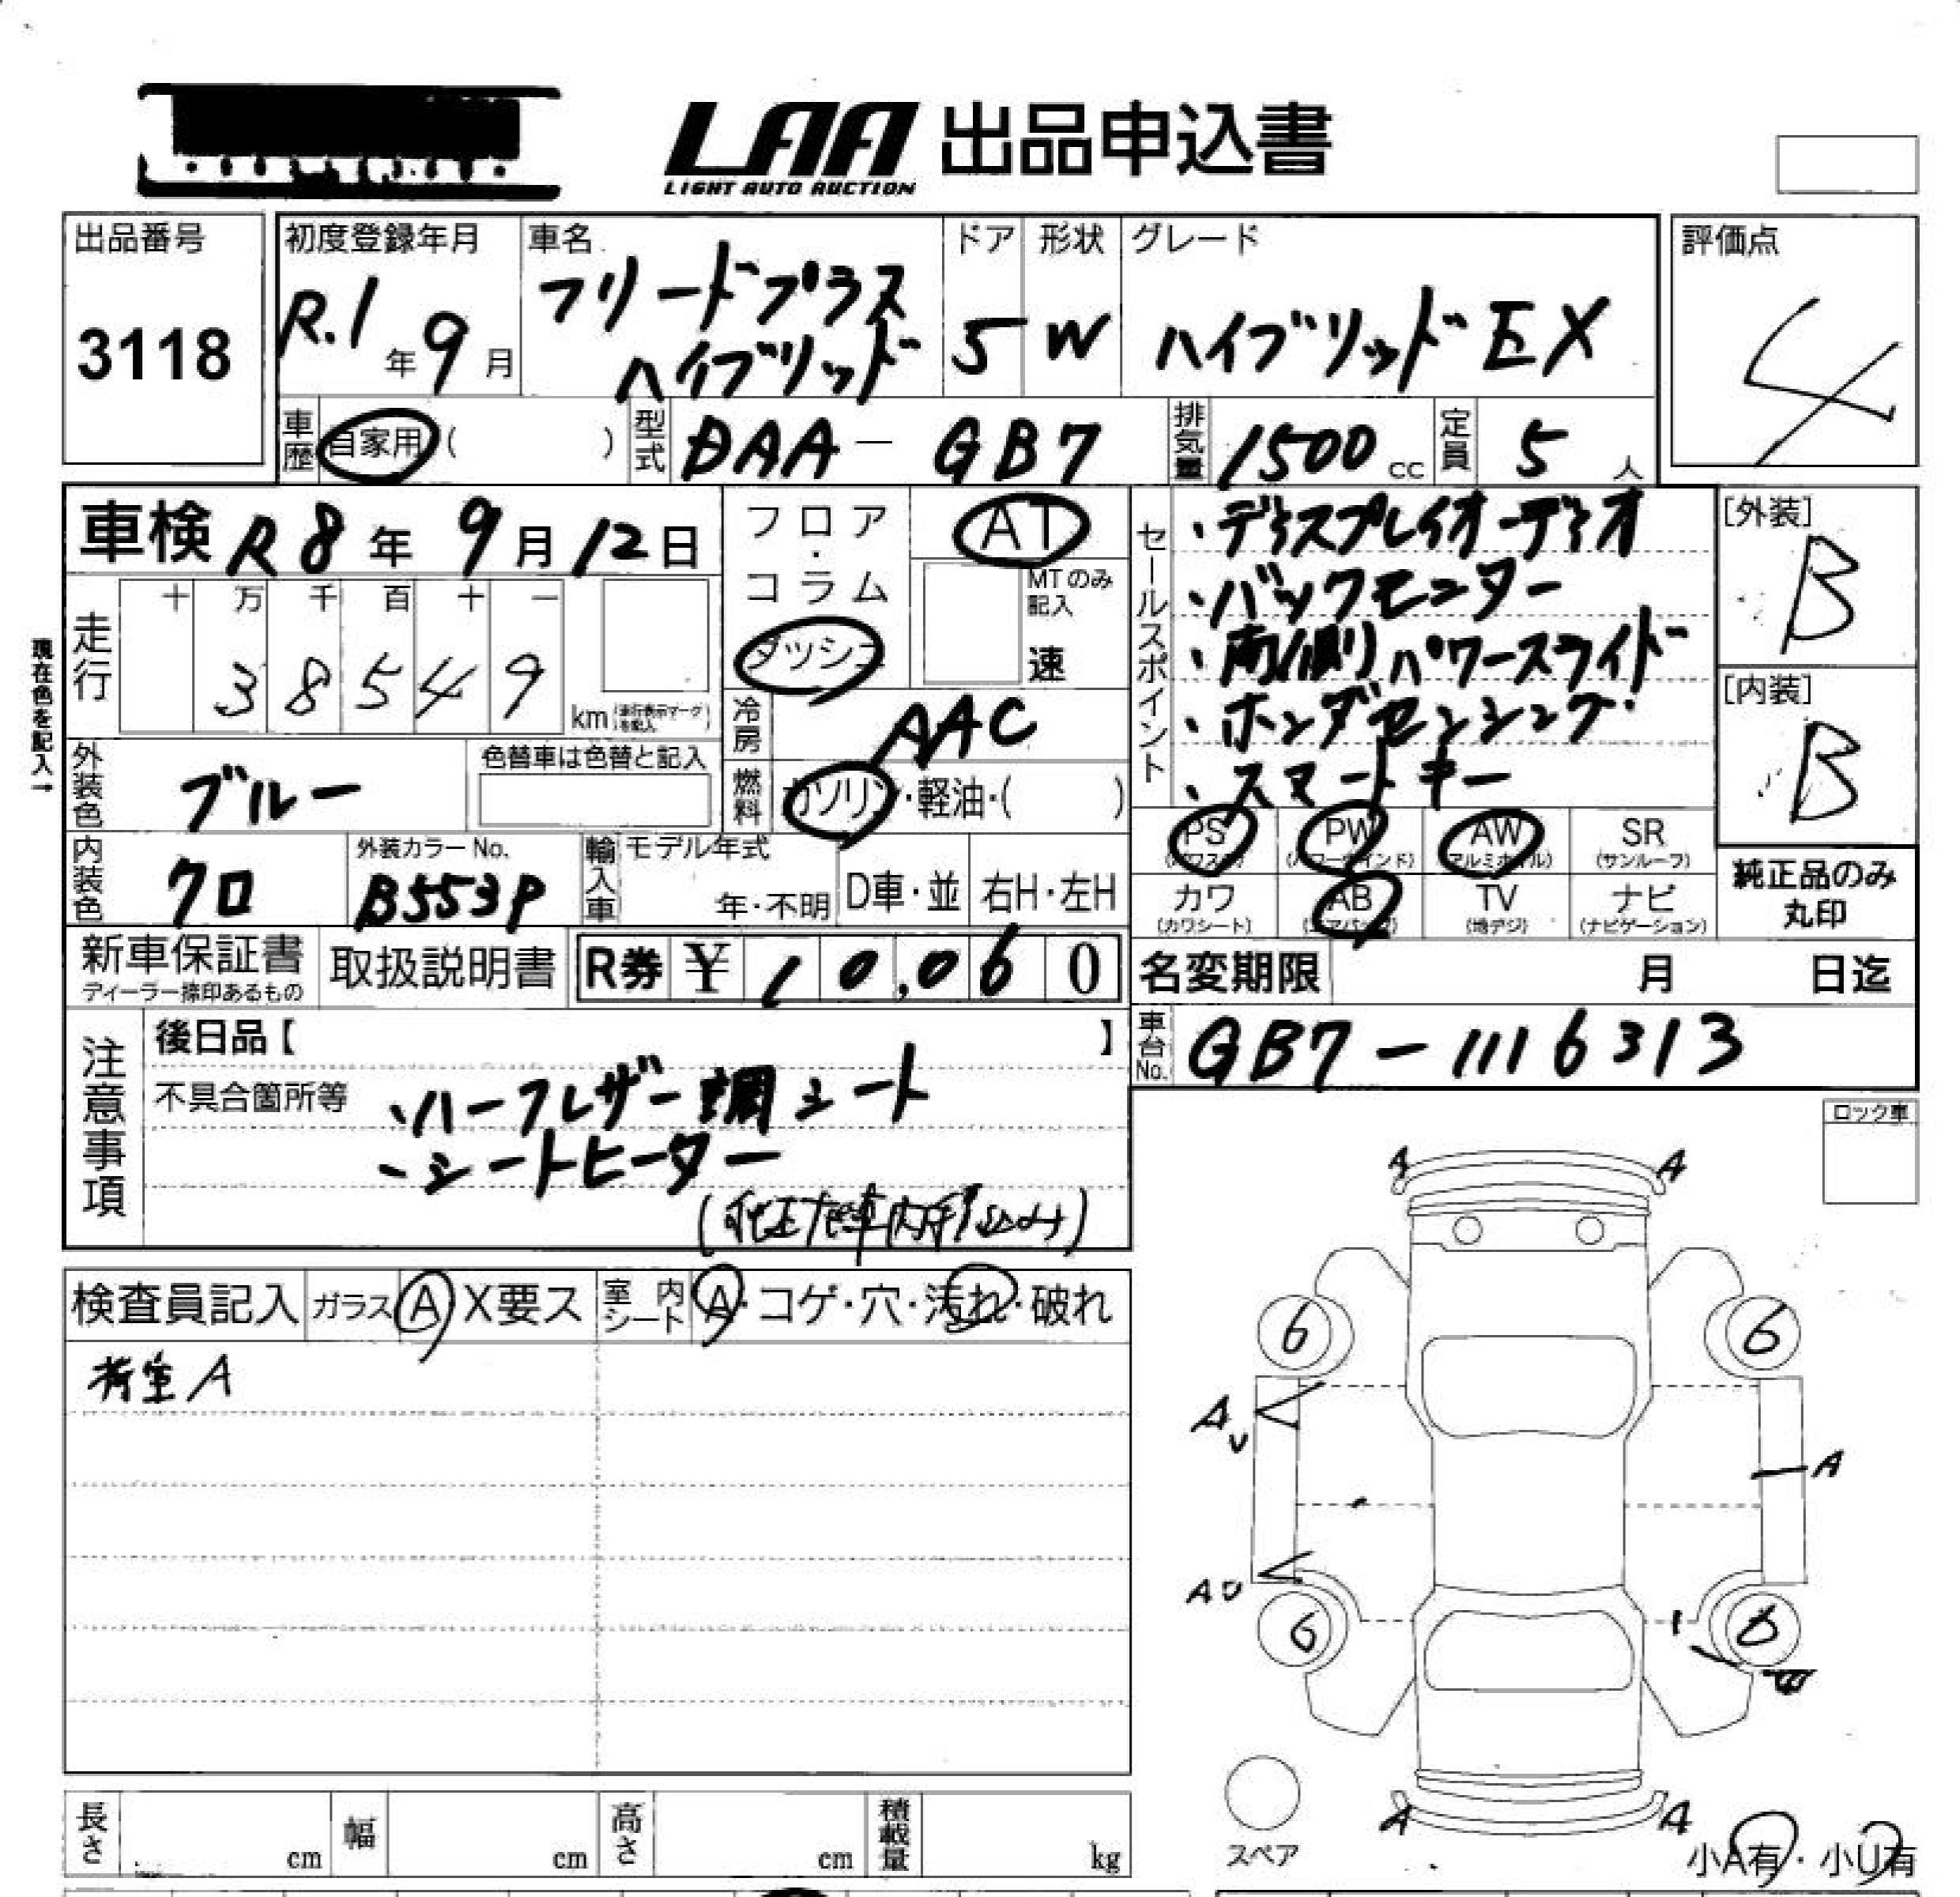 LAA 出品申込書
LIGHT AUTO AUCTION
出品番号
3118
初度登録年月
R.1年9月
車名
フリードプラス
ハイブリッド
ドア
5
形状
W
グレード
ハイブリッドEX
評価点
4
車歴 自家用( )
型式 DAA-GB7
排気量 1500cc
定員 5人
車検 R8年9月12日
フロア・コラム
ダッシュ
AT
MTのみ記入
速
セールスポイント
・ディスプレイオーディオ
・バックモニター
・両側パワースライド
・ホンダセンシング
・スマートキー
[外装]
B
[内装]
B
現在色を記入→
走行
十 万 千 百 十 一
3 8 5 4 9
km(走行表示マークを記入)
冷房 AAC
外装色 ブルー
色替車は色替と記入
燃料 ガソリン・軽油・( )
PS (パワステ)
PW (パワーウインド)
AW (アルミホイル)
SR (サンルーフ)
内装色 クロ
外装カラーNo.
B553P
輸入車 モデル年式
年・不明
D車・並
右H・左H
カワ (カワシート)
AB (エアバッグ)
TV (地デジ)
ナビ (ナビゲーション)
純正品のみ
丸印
新車保証書
ディーラー捺印あるもの
取扱説明書
R券 ¥10,060
名変期限 月 日迄
注意事項
後日品【 】
不具合箇所等
・ハーフレザー調シート
・シートヒーター
車台No. GB7-1116313
ロック車
検査員記入
ガラス A X要ス
室内シート A・コゲ・穴・汚れ・破れ
荷室A
A A
6 6
A
U
A
AU
6 6
A A
スペア
小A有・小U有
長さ cm
幅 cm
高さ cm
積載量 kg